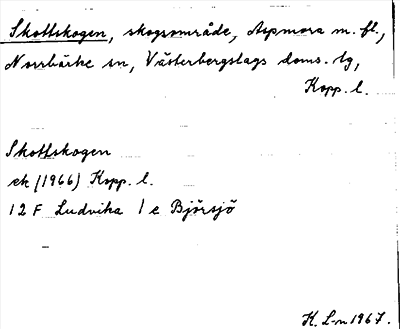 Skottskogen, skogsområde, Aspmora m. fl.,
Norrbärke sn, Västerbergslags doms. lg,
Kopp. l.
Skottskogen
ek (1966) Kopp. l.
12 F Ludvika 1 e Björsjö
K. L-n 1967.